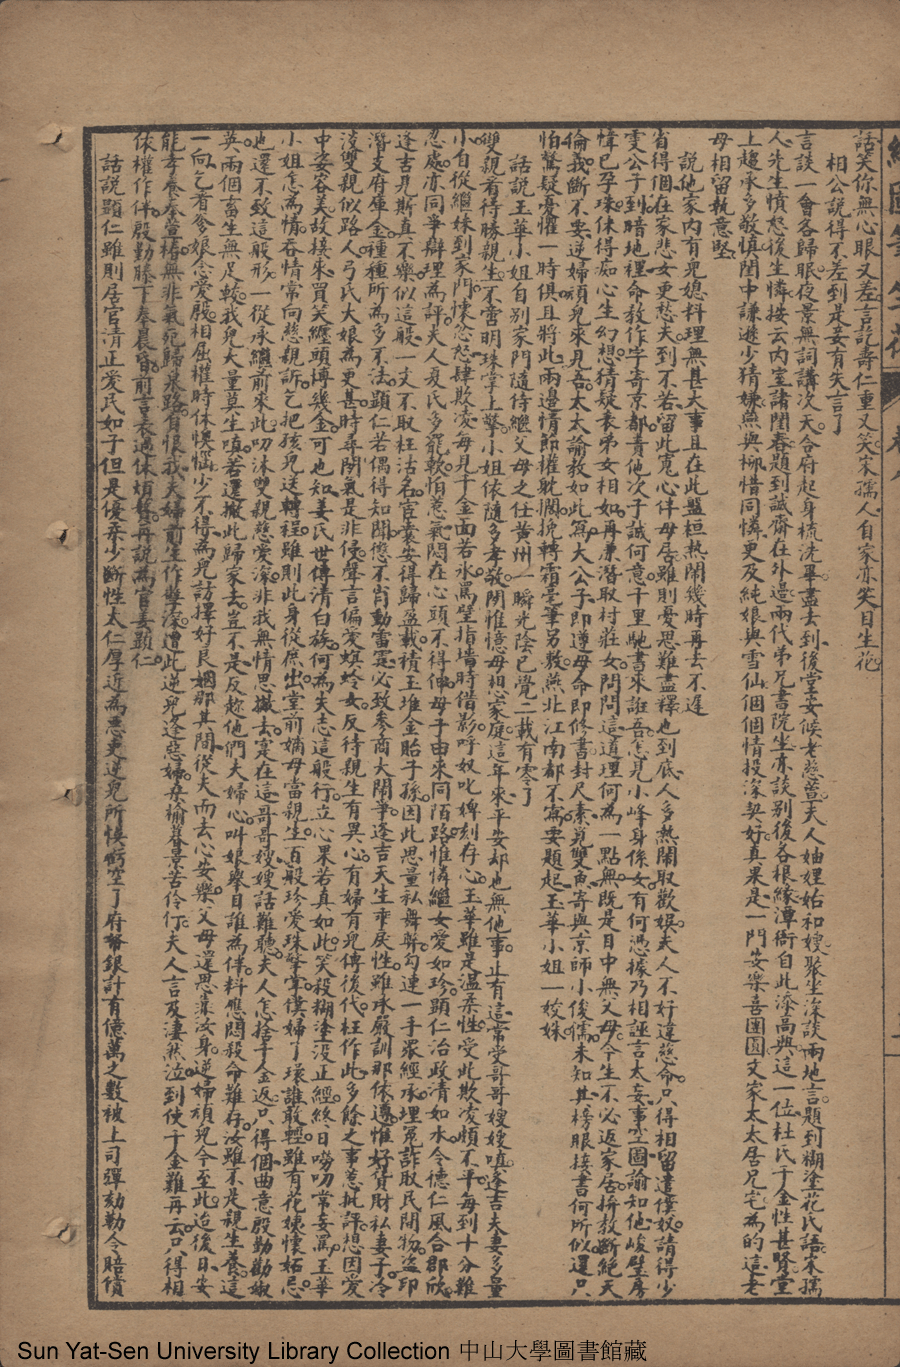 話笑你無心眼又差言說壽仁重又笑宋孺人自家亦笑目生花
相公說得不差到是妾有失言了
言談一會各歸眠夜景無詞講次天合府起身梳洗畢盡去到後堂安候老慈萱夫人妯娌姑和嫂聚坐深談兩地言題到糊塗花氏語宋孺
人先生憤怒後生憐按云內室諸閨春題到誠齋在外邊兩代弟兄書院坐亦談別後各根緣潭衙自此添高興這一位杜氏千金性甚賢堂
上趨承多敬慎閨中謙遜少猜嫌燕與柳惜同憐更及純娘與雪仙個個情投深契好真果是一門安樂喜團圓文家太太居兄宅為的這老
母相留執意堅
說他家內有兒媳料理無甚大事且在此盤桓熱鬧幾時再去不遲
省得個在家悲女更愁夫到不若留此寬心伴母居雖則憂思難盡釋也到底人多熱鬧取歡娛夫人不好違慈命只得相留遣僕奴請得少
雯公子到暗地裡命教作字寄京都責他次子誠何意千里馳書來誑吾怎見小峰身係女有何憑據乃相誣言太妄事空圖諭知他峻璧房
幃已孕珠休得痴心生幻想猜疑表弟女相如再兼潛取村莊女問問這道理何為一點無既是目中無父母今生不必返家居拚教斷絕天
倫我斷不要逆婦頑兒來見吾太太諭教如此寫大公子即遵母命即修書封尺素覓雙魚寄與京師小俊儒未知其榜眼接書何所似還只
怕驚疑憂懼一時俱且將此兩邊情節權耽擱挽轉霜毫筆另敷燕北江南都不寫要題起玉華小姐一姣姝
話說王華小姐自別家門隨侍繼父母之任黃州一瞬光陰已覺二載有零了
雙親看得勝親生不啻明珠掌上擎小姐依隨多孝敬閒惟憶母想家庭這年來平安却也無他事止有這常常哥哥嫂嫂嗔逢吉夫妻多量
小自從繼妹到家門懷忿怒肆欺凌每見千金面若冰罵壁指墻時借影呼奴叱婢刻存心玉華雖是溫柔性受此欺凌煩不平每到十分難
忍處亦同爭辯理為評夫人夏氏多寵軟怕惹氣悶在心頭不得伸母子由來同陌路惟憐繼女愛如珍顯仁治政清如水令德仁風合郡欣
逢吉見斯真不樂似這般一文不取枉沽名宦囊安得歸盈載積玉堆金貽子孫因此思量私舞弊勾連一手眾經承埋冤詐取民間物盜印
潛支府庫金種種所為多不法顯仁若偶得知聞懲不肖動雷霆必致參商大鬧爭逢吉天生乖戾性雖承嚴訓那依遵惟好貨財私妻子冷
淡雙親似路人弓氏大娘為更甚時尋閙氣是非侵聲言偏愛螟蛉女反待親生有異心有婦有兒傳後代枉作此多餘之事惹批評想因愛
中姿容美故接來買笑纏頭博幾金可也知姜氏世傳清白族何為失志這般行立心果若真如此笑殺糊塗沒正經終日嘮叨常妄罵玉華
小姐怎為情吞情常向慈親訴乞把孩兒送轉程雖則此身從庶出堂前嫡母當親生百般珍愛珠擎掌僕婦丫環誰敢輕雖有花姨懷妬忌
也還不致這般形一從承繼前來此叨沐雙親慈愛深非我無情思撇去寔在這哥哥嫂嫂話難聽夫人怎捨千金返只得個曲意殷勤勸淑
英兩個畜生無足較我兒大量莫生嗔若還撇此歸家去豈不是反趁他們夫婦心叫娘舉目誰為伴料應悶殺命難存汝雖不是親生養這
一向乞看爹娘念愛殷相屈權時休懊惱少不得為兒訪擇好良姻那其間從夫而去心安樂父母還思靠汝身逆婦頑兒今至此迨後日安
能孝養奉萱椿無非氣死歸泉路有恨我夫婦前生作孽深遭此逆兒逢惡婦桑榆暮景苦伶仃夫人言及淒然泣到使千金難再云只得相
依權作伴殷勤膝下奉晨昏前言表過休煩贅再說為官姜顯仁
話說顯仁雖則居官清正愛民如子但是優柔少斷性太仁厚近為惡吏逆兒所悞虧空了府帑銀計有億萬之數被上司彈劾勒令賠償
Sun Yat-Sen University Library Collection 中山大學圖書館藏